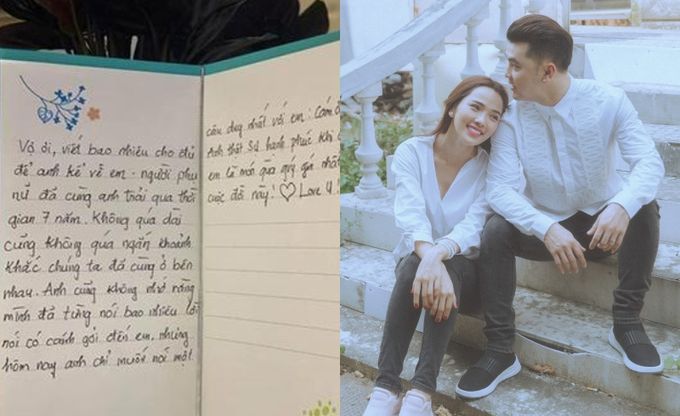 Vợ ơi, viết bao nhiêu cho đủ
để anh kể về em - người phụ
nữ đã cùng anh trải qua thời
gian 7 năm. Không quá dài
cũng không quá ngắn khoảnh
khắc chúng ta đã cùng ở bên
nhau. Anh cũng không nhớ rằng
mình đã từng nói bao nhiêu lời
nói có cánh gởi đến em, nhưng
hôm nay anh chỉ muốn nói một
câu duy nhất với em: Cám
Anh thật sự hạnh phúc khi
em là món quà quý giá nhất
cuộc đời này! ♡ Love U!